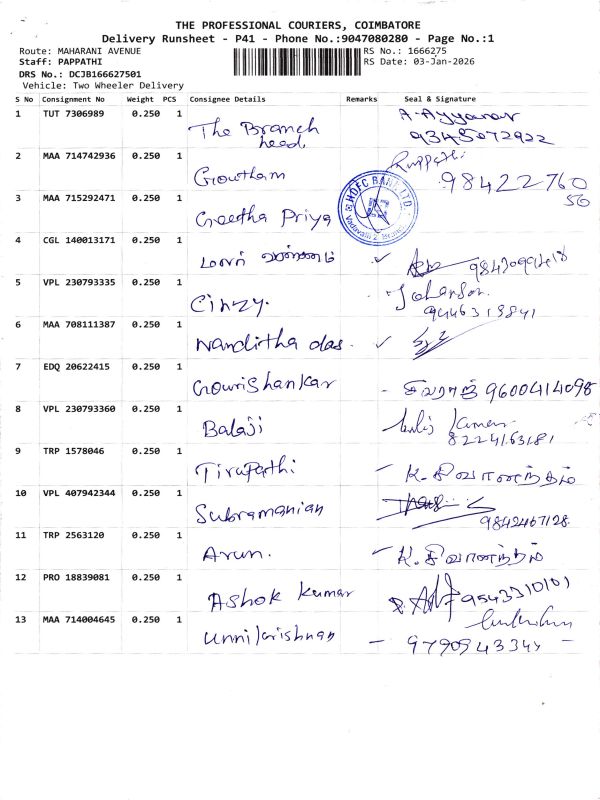 THE PROFESSIONAL COURIERS, COIMBATORE
Delivery Runsheet - P41 - Phone No.:9047080280 - Page No.:1
Route: MAHARANI AVENUE RS No.: 1666275
Staff: PAPPATHI RS Date: 03-Jan-2026
DRS No.: DCJB166627501
Vehicle: Two Wheeler Delivery
S No Consignment No Weight PCS Consignee Details Remarks Seal & Signature
1 TUT 7306989 0.250 1 The Branch head, A. Ayyanar
9345072922
2 MAA 714742936 0.250 1 Gowtham
98422760
50
3 MAA 715292471 0.250 1 Geetha Priya HDFC BANK LTD.
4 CGL 140013171 0.250 1 மலர் வண்ணம்
5 VPL 230793335 0.250 1 Cinzy.
6 MAA 708111387 0.250 1 Nanditha das.
7 EDQ 20622415 0.250 1 Gowrishankar - சிவராஜ் 9600414098
8 VPL 230793360 0.250 1 Balaji
8224163181
9 TRP 1578046 0.250 1 Tirupathi - K. சிவானந்தம்
10 VPL 407942344 0.250 1 Subramanian
9842467128
11 TRP 2563120 0.250 1 Arun. - K. சிவானந்தம்
12 PRO 18839081 0.250 1 Ashok kumar 9543310101
13 MAA 714004645 0.250 1 Unnikrishnan